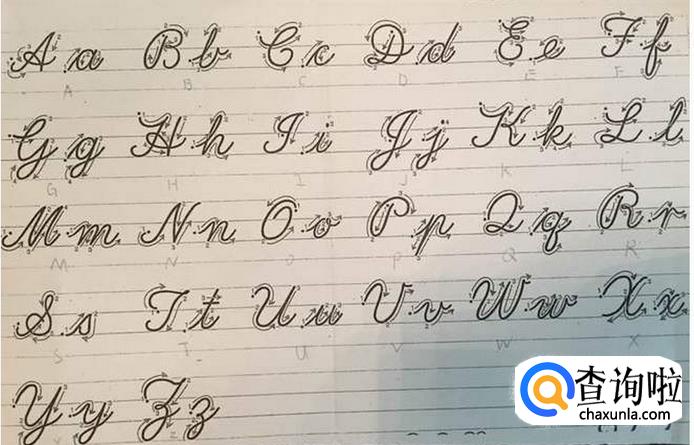 A a B b C c D d E e F f
A B C D E F
G g H h I i J j K k L l
G H I J K L
M m N n O o P p Q q R r
M N O P Q R
S s T t U u V v W w X x
S T U V W X
Y y Z z
查询啦
chaxunla.com